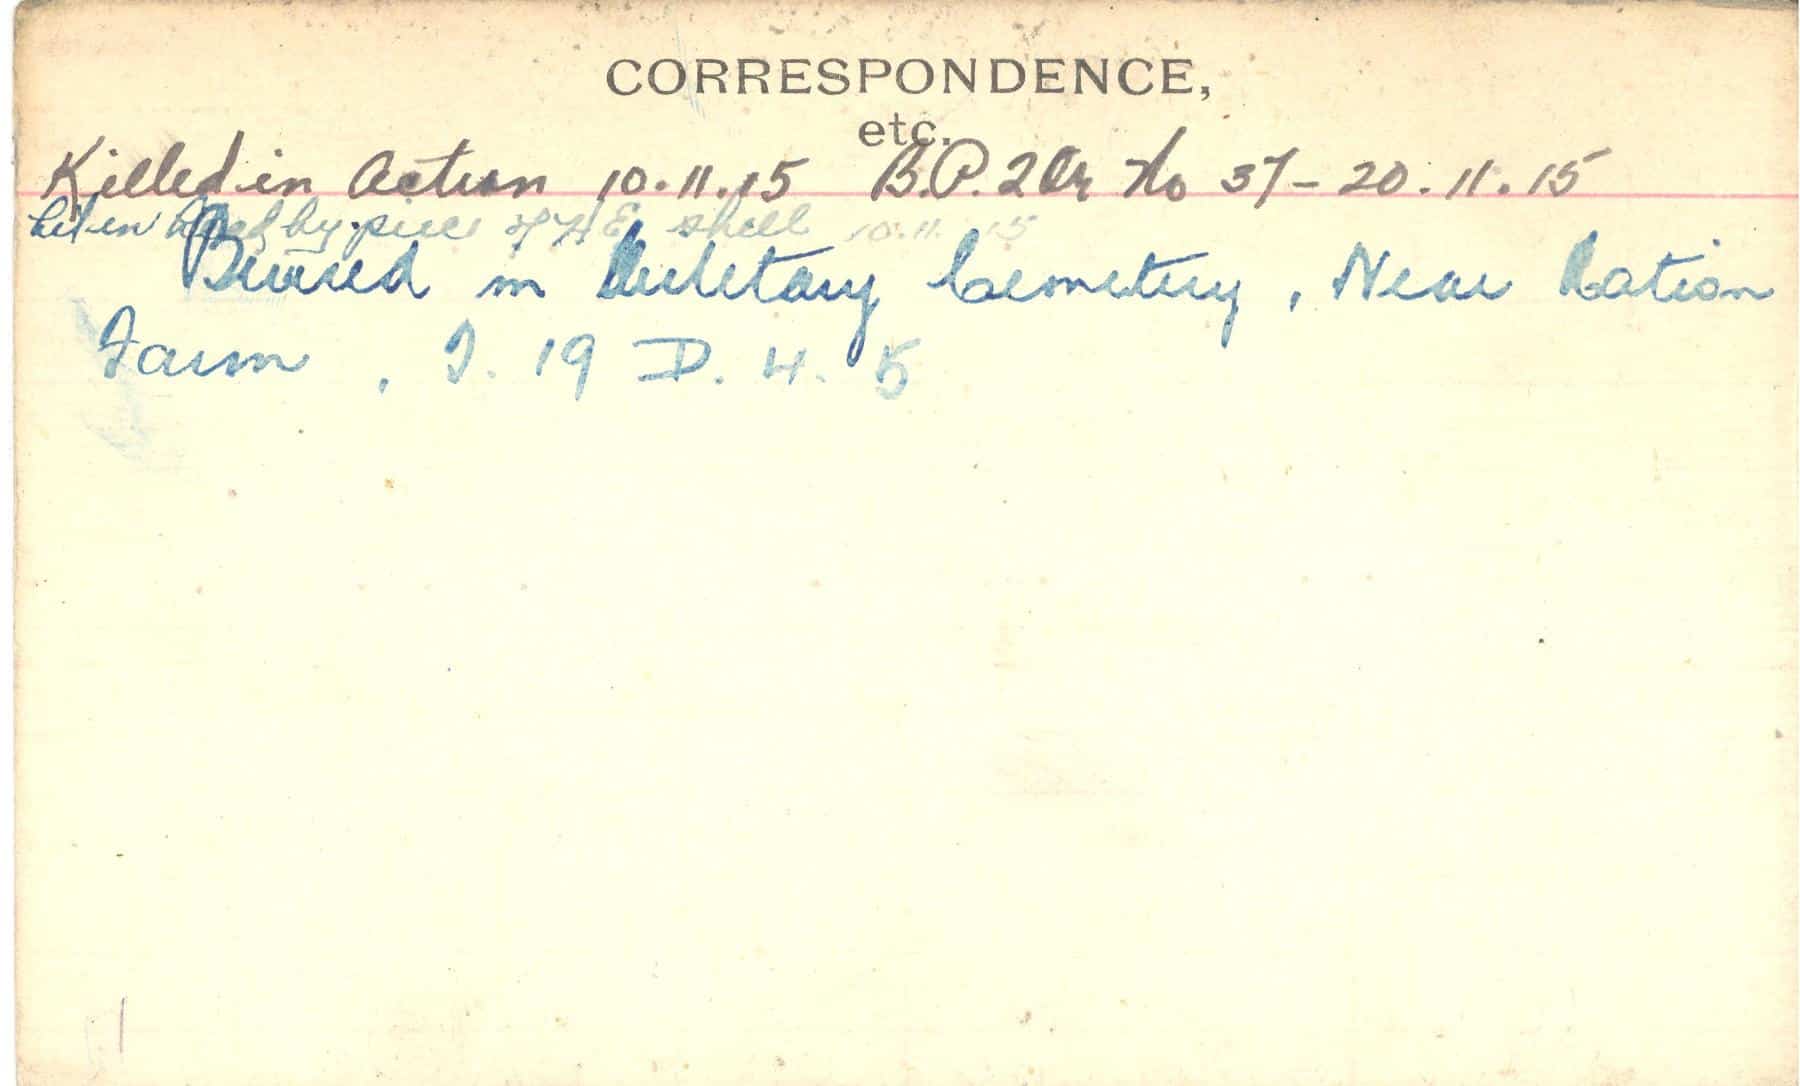 CORRESPONDENCE,
etc.
Killed in Action 10.11.15 B.P. 2 Or No 37 - 20.11.15
hit in head by piece of H E shell 10.11.15
Buried in Military Cemetery, Near Ration
Farm, I. 19 D. 4. 5